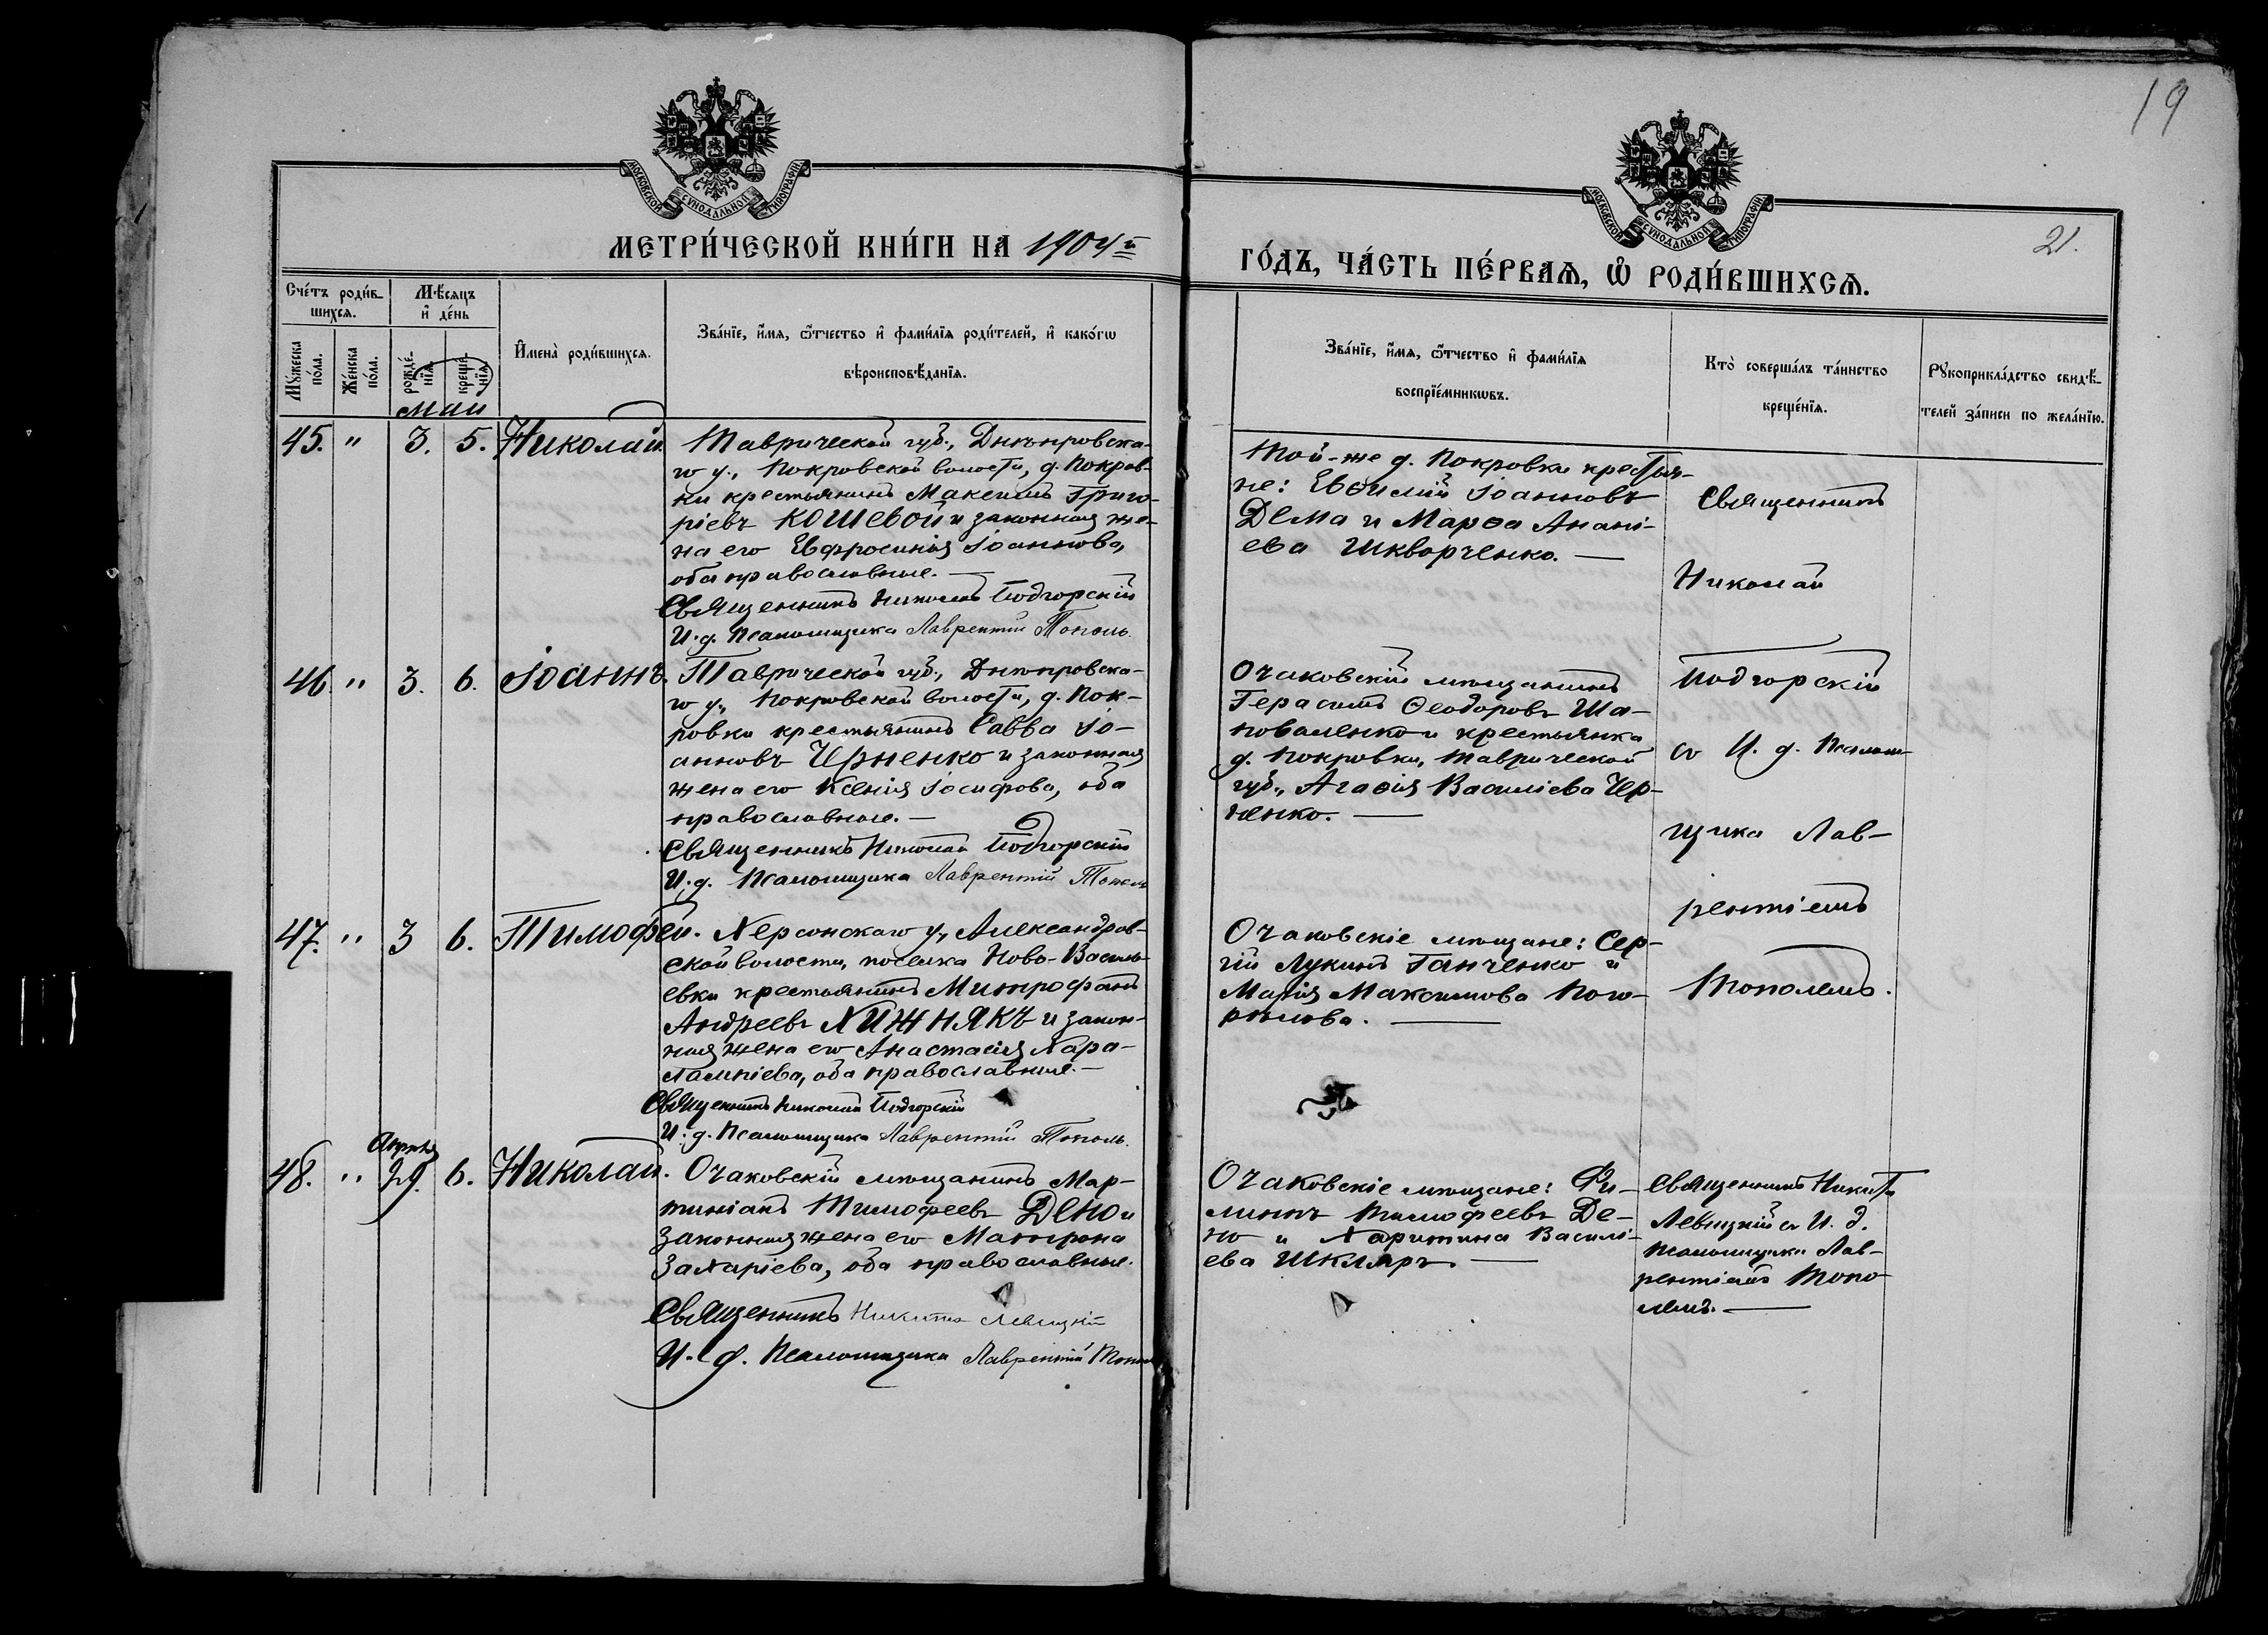 19
МОСКОВСКОЙ СУНОДАЛЬНОЙ ТИПОГРАФІИ
МОСКОВСКОЙ СУНОДАЛЬНОЙ ТИПОГРАФІИ
МЕТРИ́ЧЕСКОЙ КНИ́ГИ НА 1904й
ГО́ДЪ, ЧА́СТЬ ПЕ́РВАѦ, Ѡ҆ РОДИ́ВШИХСѦ.
21.
Сче́тъ роди́в-
шихсѧ.
Мѣ́сѧцъ
и҆ де́нь
Мꙋ́жеска
по́ла.
Же́нска
по́ла.
рожде́-
нїѧ.
креще́-
нїѧ.
И҆мена̀ роди́вшихсѧ.
Зва́нїе, и҆́мѧ, ѻ҆́тчество и҆ фами́лїѧ роди́телей, и҆ како́гѡ
вѣроисповѣ́данїѧ.
Зва́нїе, и҆́мѧ, ѻ҆́тчество и҆ фами́лїѧ
воспрїе́мникѡвъ.
Кто̀ соверша́лъ та́инство
креще́нїѧ.
Рꙋкоприкла́дство свидѣ́-
телей за́писи по жела́нїю.
Маи
45. " 3. 5. Николай.
Таврической губ., Днѣпровска-
го у., Покровской волости, д. Покров-
ки крестьянинъ Максимъ Григо-
ріевъ Кошевой и законная же-
на его Евфросинія Іоаннова,
оба православные. —
Священникъ Николай Подгорскій
И. д. Псаломщика Лаврентій Тополь.
Той-же д. Покровки крестья-
не: Евѳимій Іоанновъ
Дема и Марѳа Анані-
ева Шкворченко. —
Священникъ
Николай
Подгорскій
со И. д. Псалом-
щика Лав-
рентіемъ
Тополемъ.
46. " 3. 6. Іоаннъ.
Таврической губ., Днѣпровска-
го у., Покровской волости, д. Пок-
ровки крестьянинъ Савва Іо-
анновъ Черненко и законная
жена его Ксенія Іосифова, оба
православные. —
Священникъ Николай Подгорскій
И. д. Псаломщика Лаврентій Тополь
Очаковскій мѣщанинъ
Герасимъ Ѳеодоровъ Ша-
поваленко и крестьянка
д. Покровки, Таврической
губ., Агаѳія Василіева Чер-
ненко. —
47. " 3 6. Тимофей.
Херсонскаго у., Александров-
ской волости, поселка Ново-Василь-
евки крестьянинъ Митрофанъ
Андреевъ Хижнякъ и закон-
ная жена его Анастасія Хара-
лампіева, оба православные. —
Священникъ Николай Подгорскій
И. д. Псаломщика Лаврентій Тополь.
Очаковскіе мѣщане: Сер-
гій Лукинъ Ганченко и
Марія Максимова Пого-
рѣлова. —
Апрѣля
48. " 29. 6. Николай.
Очаковскій мѣщанинъ Мар-
тиніанъ Тимофеевъ Дено и
законная жена его Матрона
Захаріева, оба православные.
Священникъ Никита Левицкій
И. д. Псаломщика Лаврентій Тополь
Очаковскіе мѣщане: Фи-
липпъ Тимофеевъ Де-
но и Харитина Василі-
ева Шкляръ. —
Священникъ Никита
Левицкій съ И. д.
Псаломщика Лав-
рентіемъ Топо-
лемъ. —